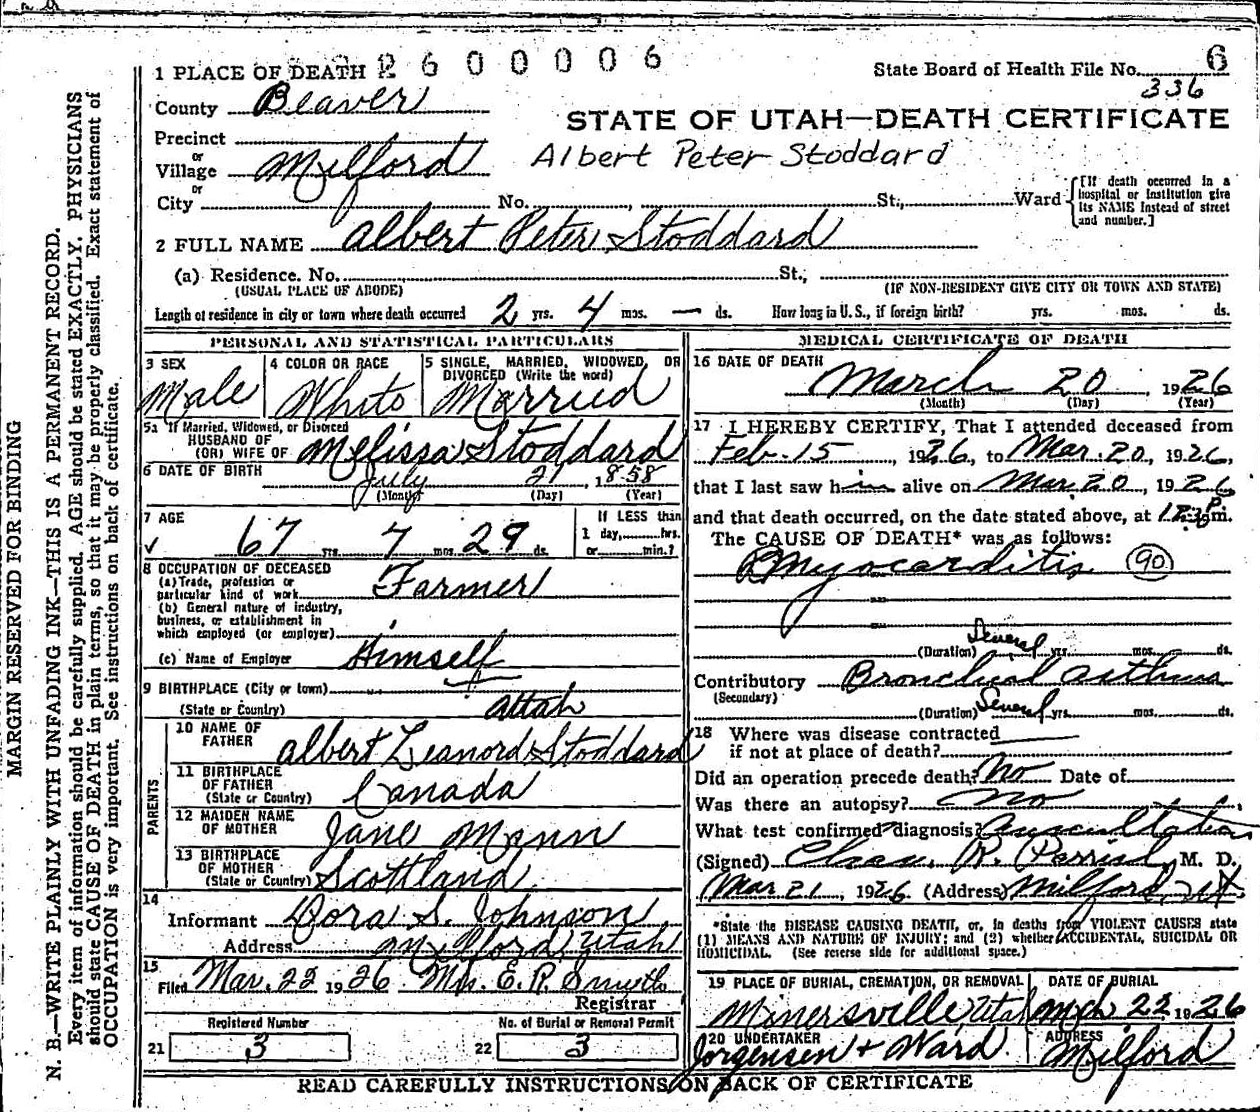 2600006
1 PLACE OF DEATH
State Board of Health File No. 6
336
County Beaver
STATE OF UTAH—DEATH CERTIFICATE
Precinct
or
Village Milford
Albert Peter Stoddard
or
City No. , St., Ward
[If death occurred in a
hospital or institution give
its NAME instead of street
and number.]
2 FULL NAME Albert Peter Stoddard
(a) Residence. No. St.,
(USUAL PLACE OF ABODE) (IF NON-RESIDENT GIVE CITY OR TOWN AND STATE)
Length of residence in city or town where death occurred 2 yrs. 4 mos. — ds. How long in U.S., if foreign birth? yrs. mos. ds.
PERSONAL AND STATISTICAL PARTICULARS
3 SEX
Male
4 COLOR OR RACE
White
5 SINGLE, MARRIED, WIDOWED, OR
DIVORCED (Write the word)
Married
5a If Married, Widowed, or Divorced
HUSBAND OF
(OR) WIFE OF Melissa Stoddard
6 DATE OF BIRTH July 21, 1858
(Month) (Day) (Year)
7 AGE
67 yrs. 7 mos. 29 ds.
If LESS than
1 day, hrs.
or min.?
8 OCCUPATION OF DECEASED
(a) Trade, profession or
particular kind of work Farmer
(b) General nature of industry,
business, or establishment in
which employed (or employer)
(c) Name of Employer Himself
9 BIRTHPLACE (City or town)
(State or Country) Uttah
PARENTS
10 NAME OF
FATHER Albert Leanord Stoddard
11 BIRTHPLACE
OF FATHER
(State or Country) Canada
12 MAIDEN NAME
OF MOTHER Jane Mann
13 BIRTHPLACE
OF MOTHER
(State or Country) Scottland
14
Informant Dora S. Johnson
Address Milford Utah
15
Filed Mar. 22 1926 Mrs. E. R. Smith
Registrar
Registered Number
21 3
No. of Burial or Removal Permit
22 3
MEDICAL CERTIFICATE OF DEATH
16 DATE OF DEATH
March 20, 1926
(Month) (Day) (Year)
17 I HEREBY CERTIFY, That I attended deceased from
Feb. 15, 1926, to Mar. 20, 1926,
that I last saw him alive on Mar 20, 1926
and that death occurred, on the date stated above, at m.
The CAUSE OF DEATH* was as follows:
Myocarditis 90
(Duration) Several yrs. mos. ds.
Contributory Bronchial asthma
(Secondary)
(Duration) Several yrs. mos. ds.
18 Where was disease contracted
if not at place of death?
Did an operation precede death? No Date of
Was there an autopsy? no
What test confirmed diagnosis? Auscultation
(Signed) Chas. R. M. D.
Mar 21, 1926 (Address) Milford, Ut
*State the DISEASE CAUSING DEATH, or, in deaths from VIOLENT CAUSES state
(1) MEANS AND NATURE OF INJURY; and (2) whether ACCIDENTAL, SUICIDAL OR
HOMICIDAL. (See reverse side for additional space.)
19 PLACE OF BURIAL, CREMATION, OR REMOVAL
Minersville Utah
DATE OF BURIAL
Mch 22 1926
20 UNDERTAKER
Jorgensen + Ward
ADDRESS
Milford
READ CAREFULLY INSTRUCTIONS ON BACK OF CERTIFICATE
MARGIN RESERVED FOR BINDING
N. B.—WRITE PLAINLY WITH UNFADING INK—THIS IS A PERMANENT RECORD.
Every item of information should be carefully supplied. AGE should be stated EXACTLY. PHYSICIANS
should state CAUSE OF DEATH in plain terms, so that it may be properly classified. Exact statement of
OCCUPATION is very important. See instructions on back of certificate.